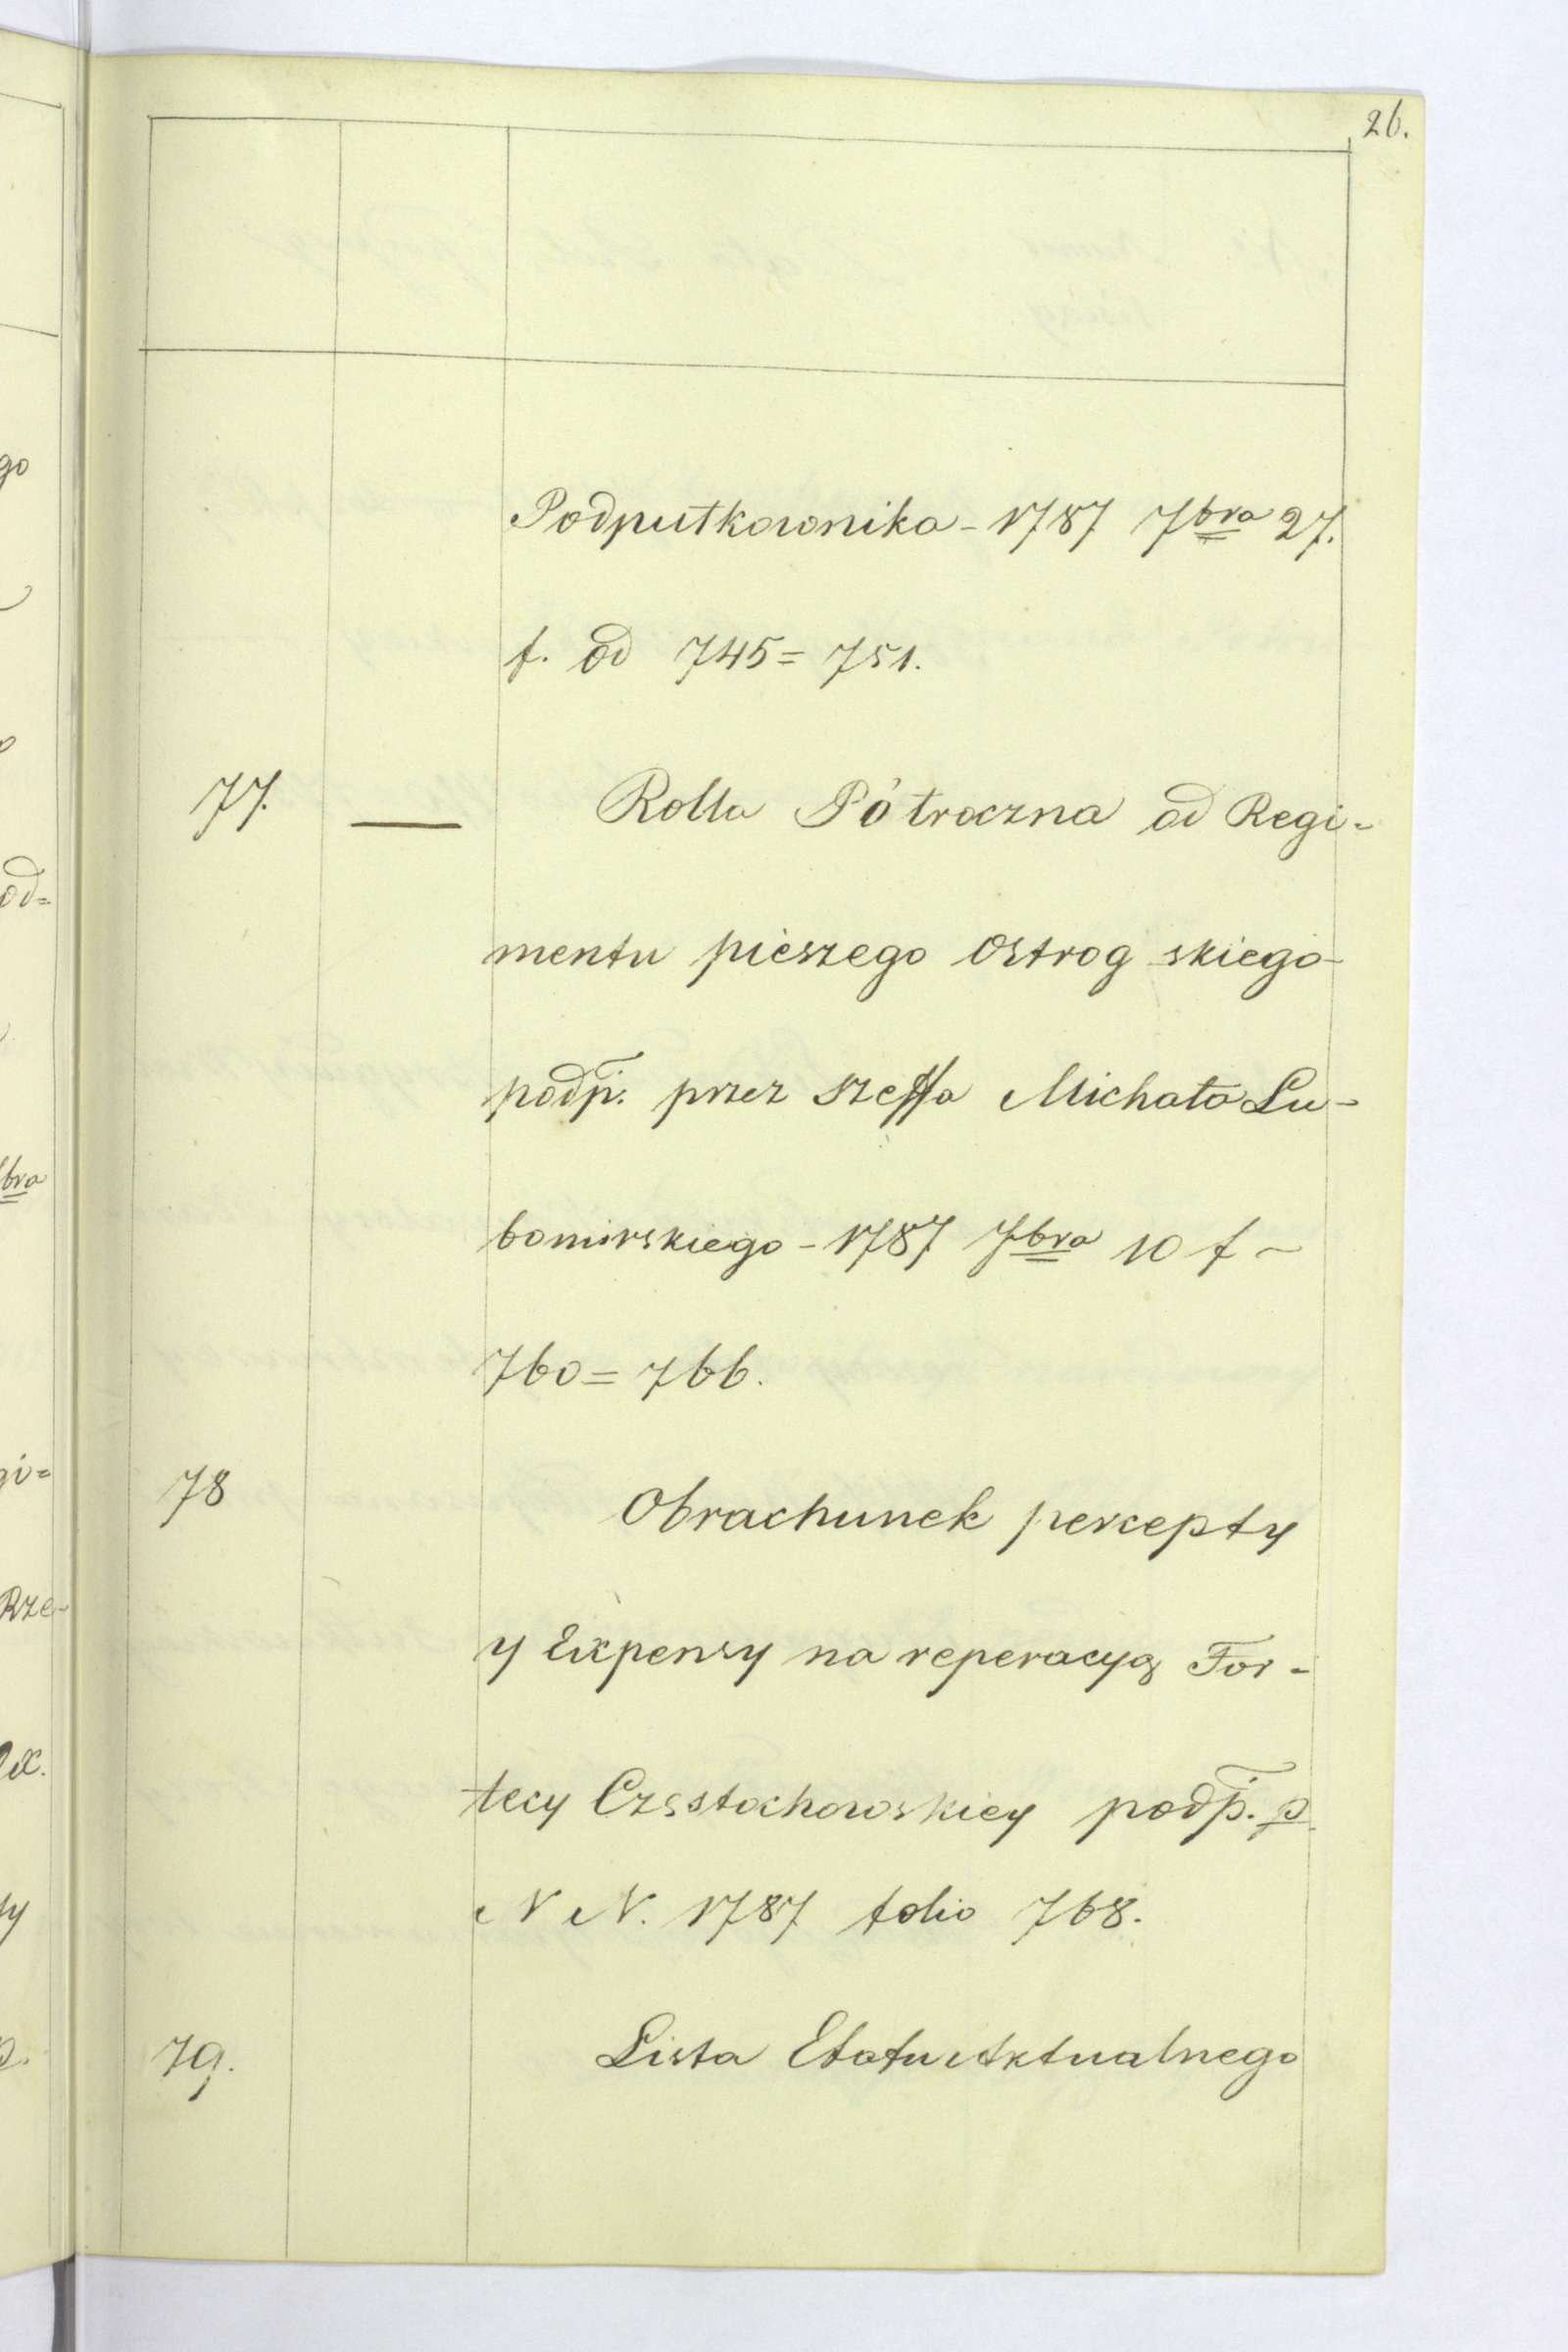 26.
Podpułkownika - 1787 7bra 27.
f. od 745 = 751.
77. — Rolla Półroczna od Regi-
mentu pieszego Ostrogskiego
podp. przez Szeffa Michała Lu-
bomirskiego - 1787 7bra 10 f -
760 = 766.
78 Obrachunek percepty
y Expensy na reperacyą For-
tecy Częstochowskiey podp. p
N N. 1787 folio 768.
79. Lista Etatu Aktualnego